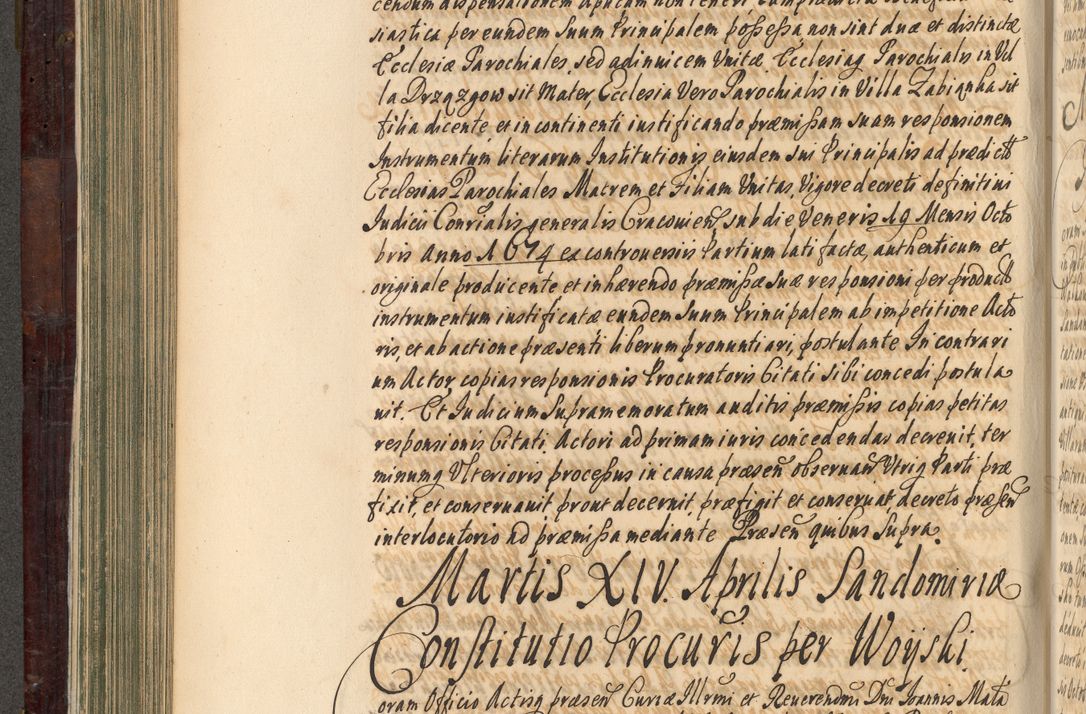 cendum dispensationem
siastica per eundem Suum Principalem possessa non sint duæ et distinctæ
Ecclesiæ Parochiales, sed adinuicem Unitæ Ecclesiaq Parochialis in Vil
la Drzązgow sit Mater, Ecclesia Vero Parochialis in Villa Zabianka sit
filia dicente et in continenti iustificando præmissam suam responsionem
Instrumentum literarum Institutionis eiusdem sui Principalis ad prædict
Ecclesias Parochiales Matrem et Filiam Unitas, Vigore decreti definitiui
Iudicii Conrialis generalis Cracouien, sub die Veneris 19 Mensis Octo
bris Anno 1674 ex controuersiis Partium lati factæ, authenticum et
originale producente et inhærendo præmissæ suæ responsioni per product
instrumentum iustificatæ eundem Suum Principalem ab impetitione Acto
ris, et ab actione præsenti liberum pronuntiari, postulante In contrari
um Actor copias responsionis Procuratoris Citati sibi concedi postula
uit. Et Iudicium Supramemoratum auditis præmissis copias petitas
responsionis Citati Actori ad primam iuris concedendas decreuit, ter
minumq Ulterioris processus in causa præsen obseruan Utriq Parti præ
fixit, et conseruauit prout decernit, præfigit et conseruat, decreto præsen
interlocutorio ad præmissa mediante Præsen quibus Supra.
Martis XIV. Aprilis Sandomiriæ
Constitutio Procuris per Woyski
oram Officio Actisq præsen Curiæ Illrmi et Reuerendmi Dni Ioannis Mała